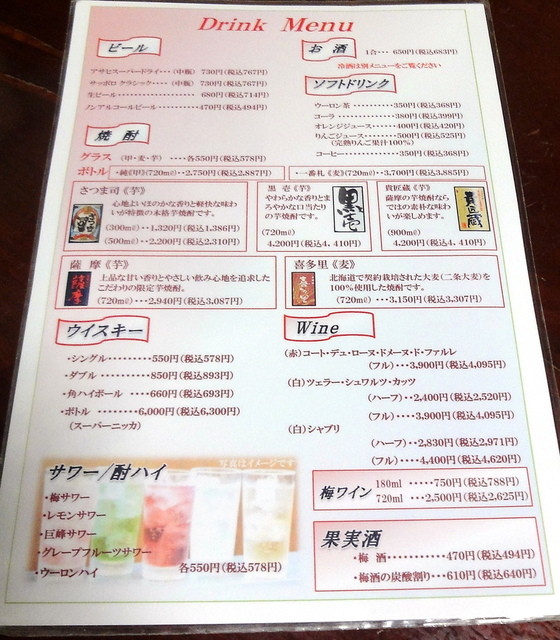 Drink Menu
ビール
アサヒスーパードライ・・(中瓶) 730円(税込767円)
サッポロクラシック・・・(中瓶) 730円(税込767円)
生ビール・・・・・・・・・・・・・・680円(税込714円)
ノンアルコールビール・・・・・・470円(税込494円)
お酒 1合・・・ 650円(税込683円)
冷酒は別メニューをご覧ください
ソフトドリンク
ウーロン茶・・・・・・・・・350円(税込368円)
コーラ・・・・・・・・・・・380円(税込399円)
オレンジジュース・・・・・400円(税込420円)
りんごジュース・・・・・・500円(税込525円)
(完熟りんご果汁100%)
コーヒー・・・・・・・・・・350円(税込368円)
焼酎
グラス (甲・麦・芋) ・・・・各550円(税込578円)
ボトル ・純(甲)(720mℓ)・・2,750円(税込2,887円)
・一番札《麦》(720mℓ)・・3,700円(税込3,885円)
さつま司《芋》
心地よいまろやかな香りと軽快な味わいが特徴の本格芋焼酎です。
(300mℓ)・・・1,320円(税込1,386円)
(500mℓ)・・・2,200円(税込2,310円)
黒壱《芋》
やわらかな香りとま
ろやかな口当たり
の芋焼酎です。
(720mℓ)
4,200円(税込4,410円)
黒壱
貴匠蔵《芋》
薩摩の芋焼酎なら
ではの素朴な味わ
いが楽しめます。
(900mℓ)
4,200円(税込4,410円)
貴匠蔵
薩摩《芋》
上品な甘い香りとやさしい飲み心地を追求した
こだわりの限定芋焼酎。
(720mℓ)・・・2,940円(税込3,087円)
薩摩
喜多里《麦》
北海道で契約栽培された大麦(二条大麦)を
100%使用した焼酎です。
(720mℓ)・・・3,150円(税込3,307円)
喜多里
ウイスキー
・シングル・・・・・・・・・550円(税込578円)
・ダブル・・・・・・・・・・850円(税込893円)
・角ハイボール ・・・・660円(税込693円)
・ボトル・・・・・・・6,000円(税込6,300円)
(スーパーニッカ)
Wine
(赤)コート・デュ・ローヌ・ドメーヌ・ド・ファルレ
(フル)・・・3,900円(税込4,095円)
(白)ツェラー・シュワルツ・カッツ
(ハーフ)・・2,400円(税込2,520円)
(フル)・・・3,900円(税込4,095円)
(白)シャブリ
(ハーフ)・・2,830円(税込2,971円)
(フル)・・・・4,400円(税込4,620円)
サワー/酎ハイ
写真はイメージです
・梅サワー
・レモンサワー
・巨峰サワー
・グレープフルーツサワー
・ウーロンハイ 各550円(税込578円)
梅ワイン 180ml ・・・・・750円(税込788円)
720ml ・・・2,500円(税込2,625円)
果実酒
・梅 酒・・・・・・・・・470円(税込494円)
・梅酒の炭酸割り・・・610円(税込640円)